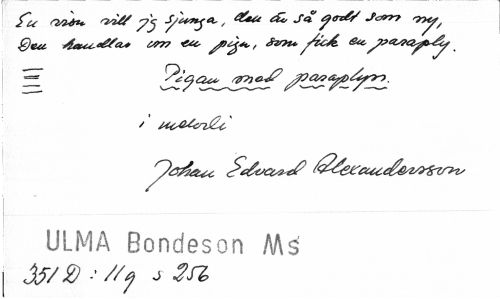 En visa vill jg sjunga, den är så godt som ny,
Den handlar om en piga, som fick en paraply.
Pigan med paraplyn.
i melodi
Johan Edvard Alexandersson
ULMA Bondeson Ms
351 D : 11 q s 256